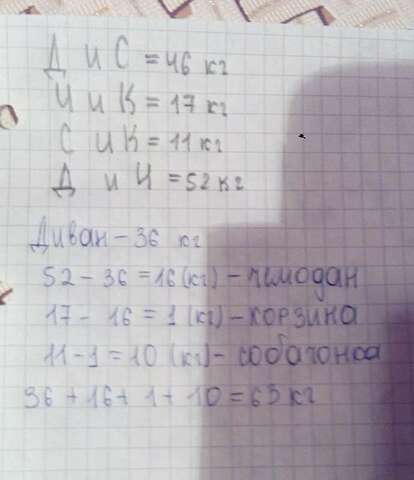 Д и С = 46 кг
Ч и К = 17 кг
С и К = 11 кг
Д и Ч = 52 кг
Диван - 36 кг
52 - 36 = 16 (кг) - чемодан
17 - 16 = 1 (кг) - корзина
11 - 1 = 10 (кг) - собачонка
36 + 16 + 1 + 10 = 63 кг